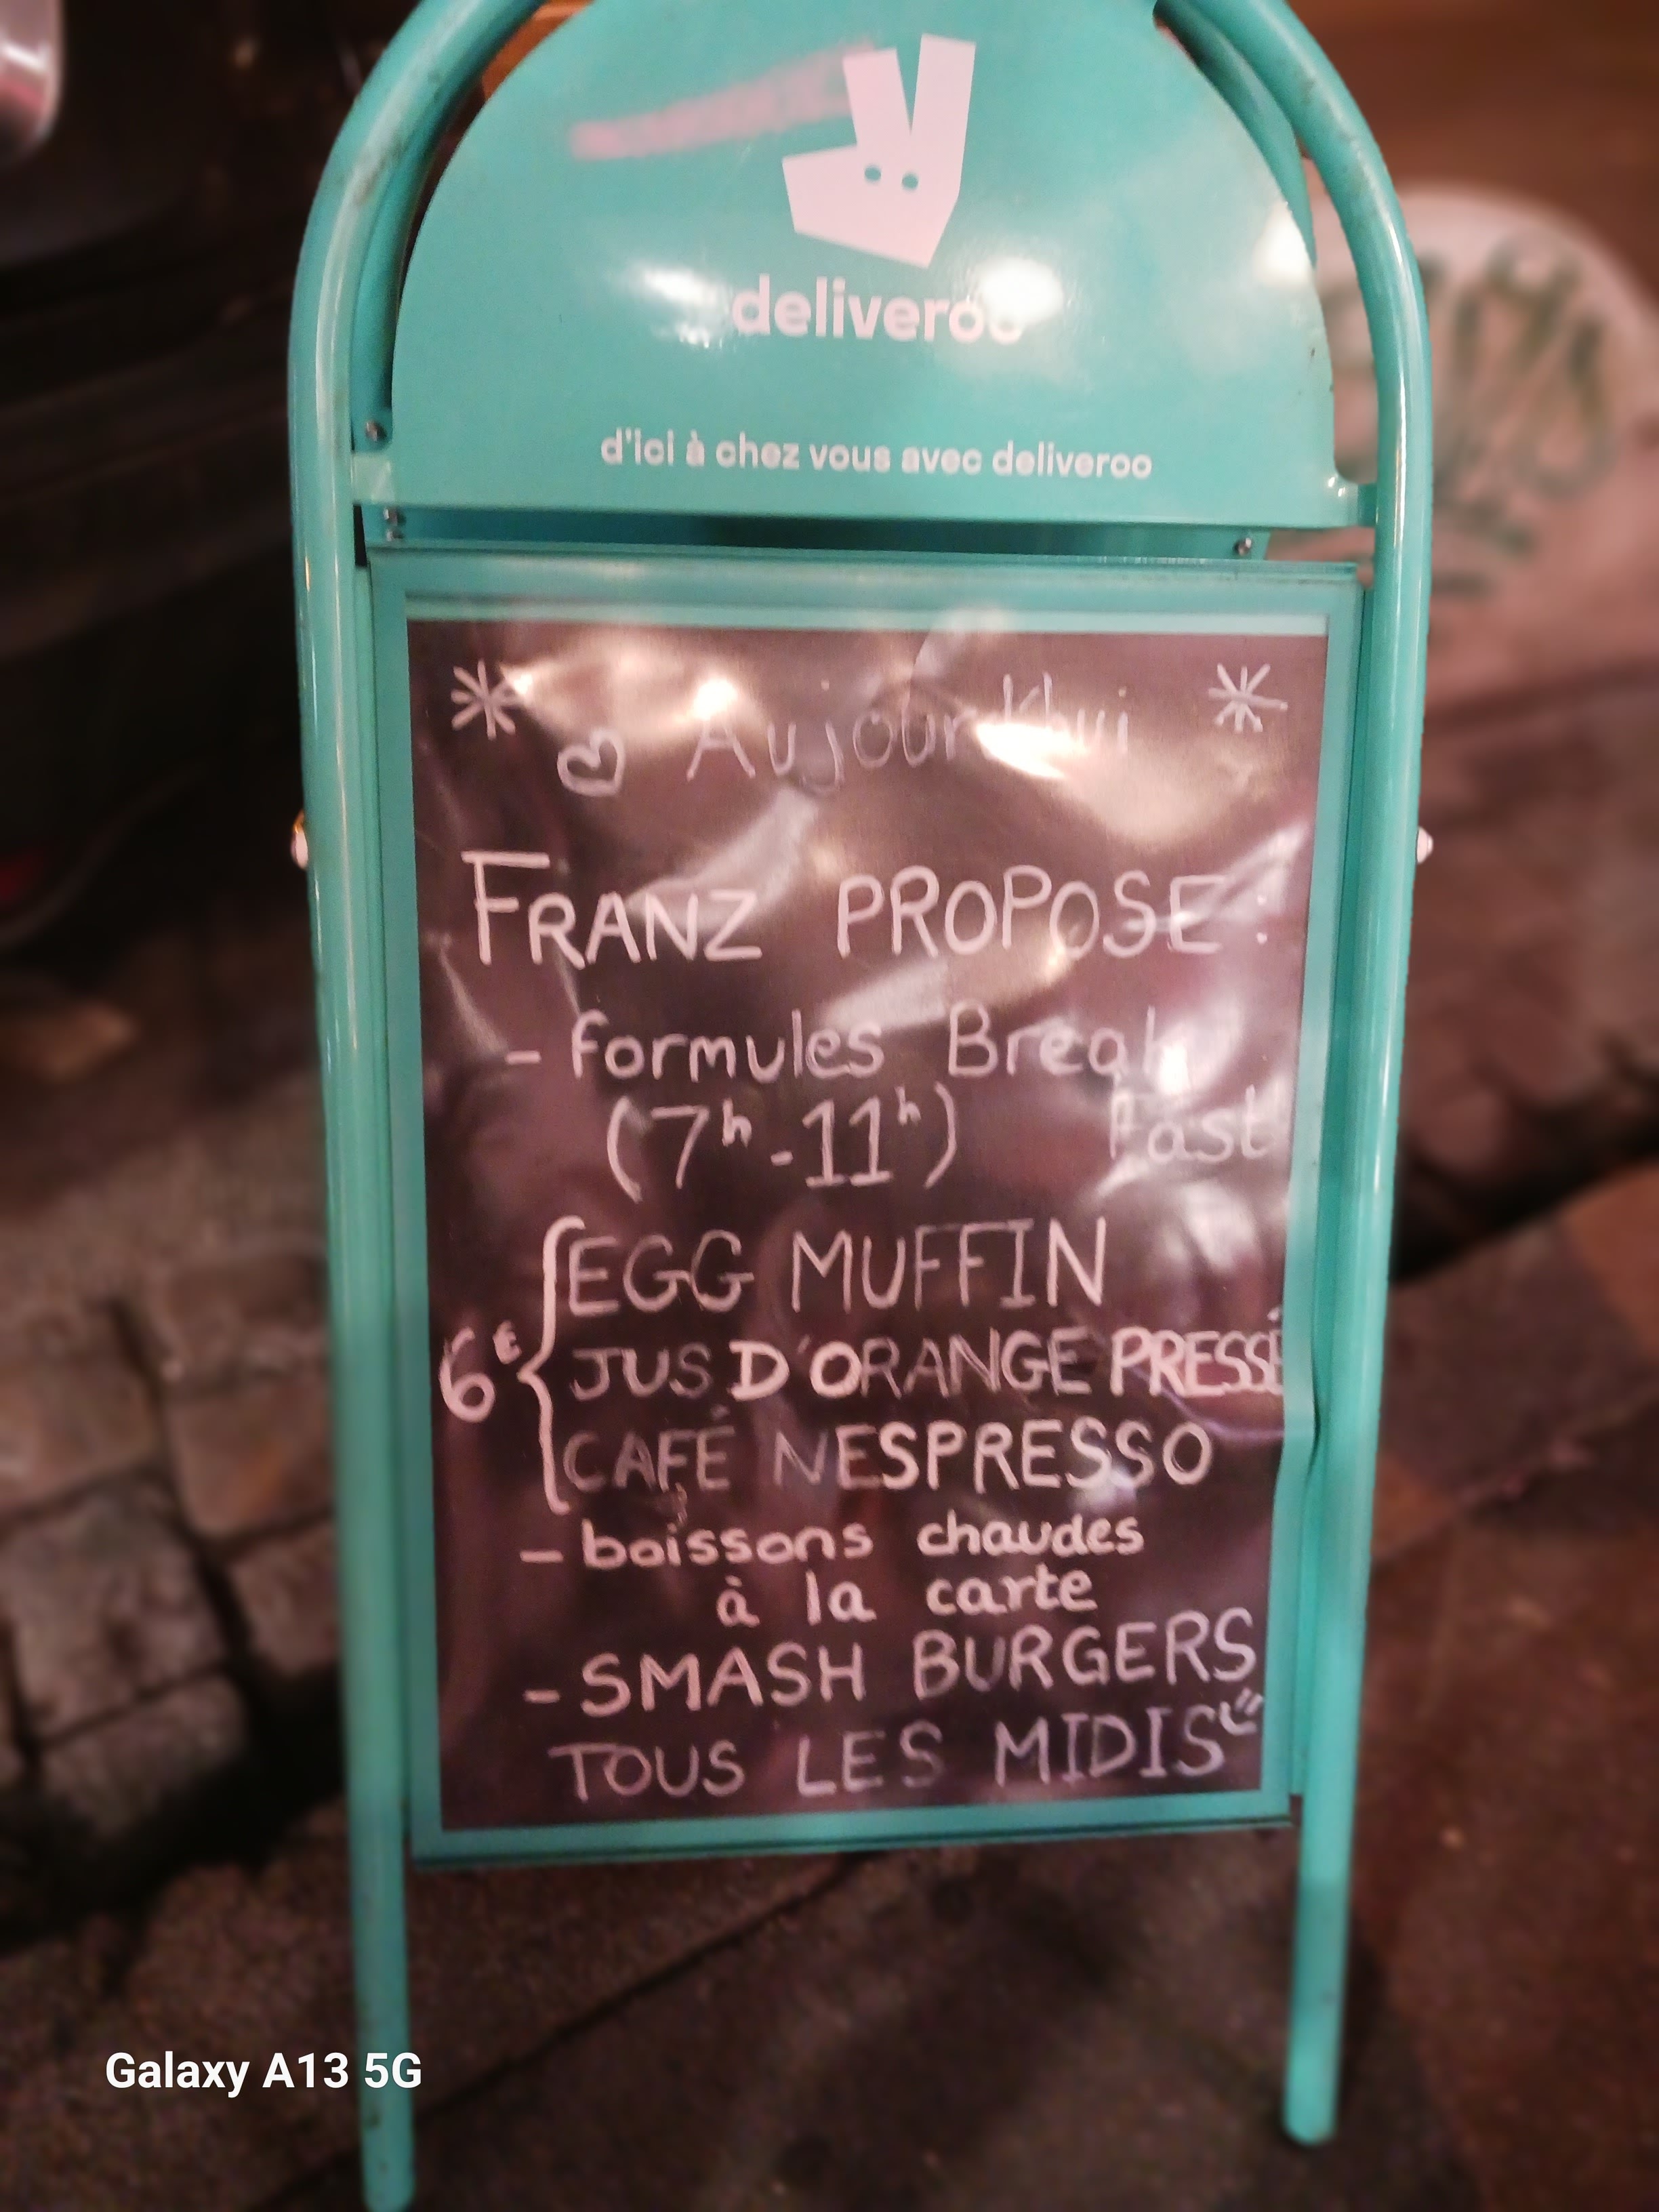 deliveroo
d'ici à chez vous avec deliveroo
Aujourd'hui
FRANZ PROPOSE:
- formules Break
(7h-11h) Fast
EGG MUFFIN
6€ JUS D'ORANGE PRESSÉ
CAFÉ NESPRESSO
- boissons chaudes
à la carte
- SMASH BURGERS
TOUS LES MIDIS
Galaxy A13 5G